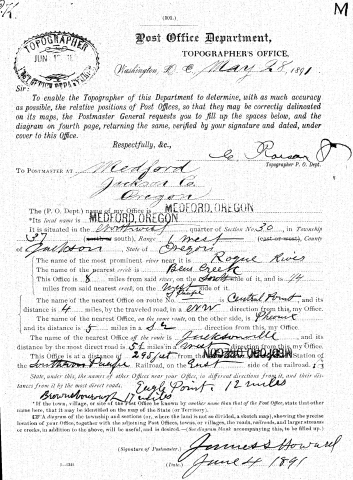 (101.)
M
TOPOGRAPHER
JUN
POST OFFICE DEPARTMENT
Post Office Department,
TOPOGRAPHER'S OFFICE,
Washington, D. C., May 28, 1891
Sir:
To enable the Topographer of this Department to determine, with as much accuracy
as possible, the relative positions of Post Offices, so that they may be correctly delineated
on its maps, the Postmaster General requests you to fill up the spaces below, and the
diagram on fourth page, returning the same, verified by your signature and dated, under
cover to this Office.
Respectfully, &c.,
Topographer P. O. Dept.
TO POSTMASTER AT Medford
Jackson Co.
Oregon
The (P. O. Dept.) name of my Office is MEDFORD, OREGON
*Its local name is MEDFORD, OREGON
It is situated in the Northwest quarter of Section No. 30, in Township
37 south), Range 1 west (east or west), County
of Jackson, State of Oregon
The name of the most prominent river near it is Rogue River
The name of the nearest creek is Bear Creek
This Office is 8 miles from said river, on the side of it, and is 1/4
miles from said nearest creek, on the West side of it.
The name of the nearest Office on route No. is Central Point and its
distance is 4 miles, by the traveled road, in a NW direction from this, my Office.
The name of the nearest Office, on the same route, on the other side, is Phoenix
and its distance is 5 miles in a S.E. direction from this, my Office.
The name of the nearest Office off the route is Jacksonville and its
distance by the most direct road is 5 1/2 miles in a west direction from this, my Office.
This Office is at a distance of 295 feet from the MEDFORD, OREGON Station of the
Southern Pacific Railroad, on the East side of the railroad.
State, under this, the names of all other Offices near your Office, in different directions from it, and their dis-
tances from it by the most direct roads.
Eagle Point, 12 miles
Brownsborough 17 miles
* If the town, village, or site of the Post Office be known by another name than that of the Post Office, state that other
name here, that it may be identified on the map of the State (or Territory).
A diagram of the township and sections (or, where the land is not so divided, a sketch map), showing the precise
location of your Office, together with the adjoining Post Offices, towns, or villages, the roads, railroads, and larger streams
or creeks, in addition to the above, will be useful, and is desired.
(Signature of Postmaster.) James S Howard
(Date.) June 4 1891